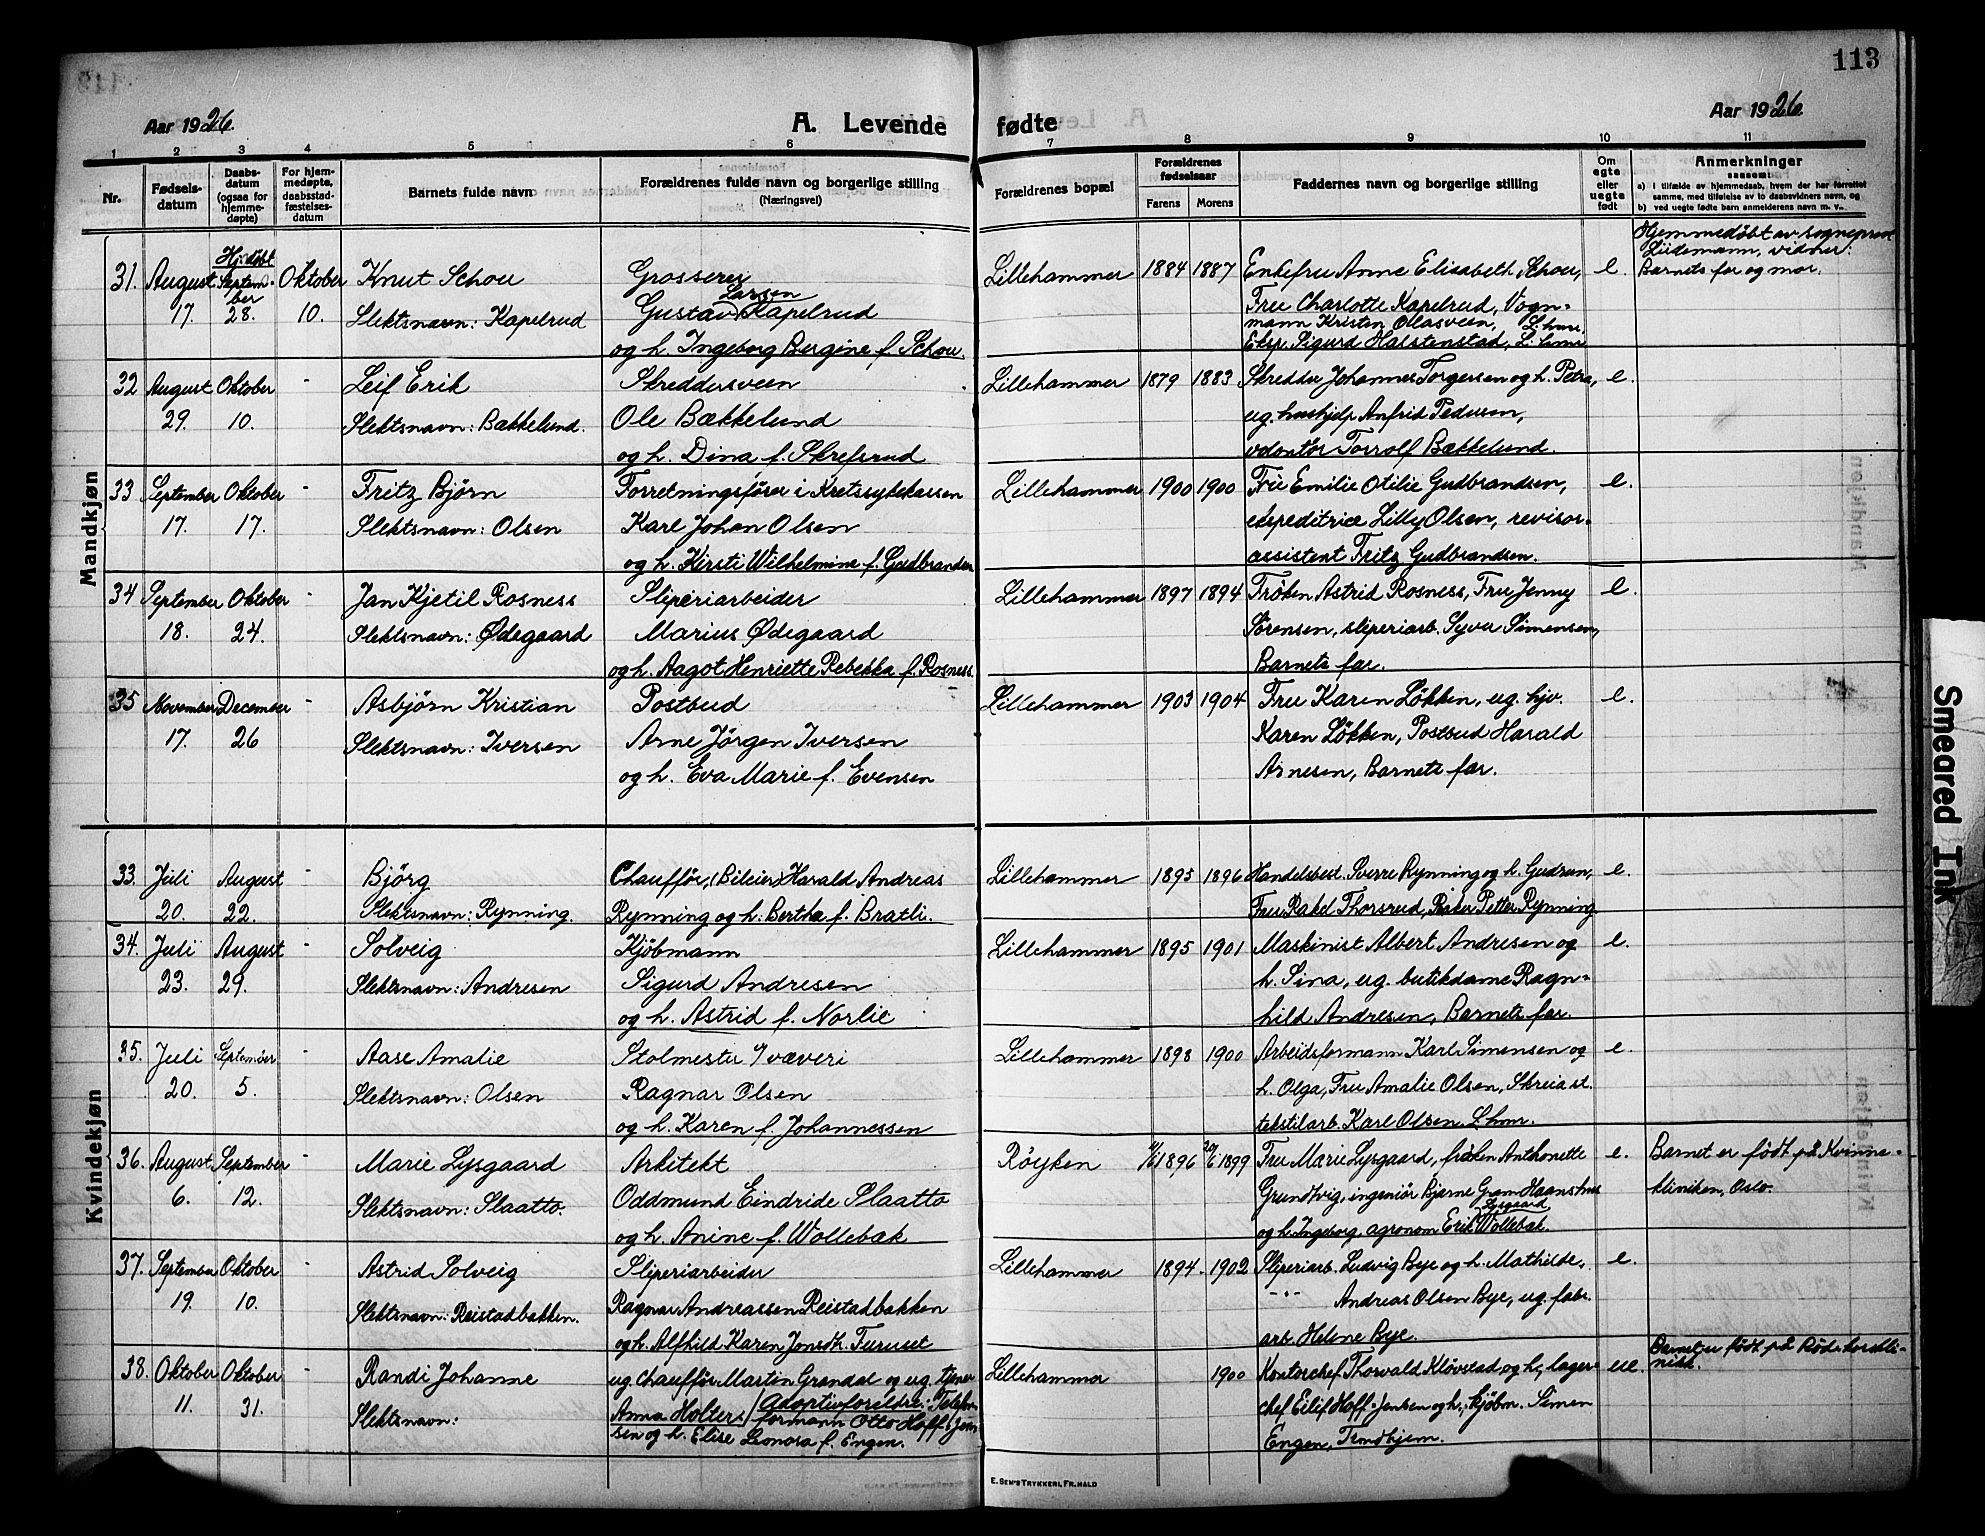 113
Aar 1926.
A. Levende
fødte
Aar 1926
1 2 3 4 5 6 7 8 9 10 11
Nr.
Fødsels-
datum
Daabs-
datum
(ogsaa for
hjemme-
døpte)
For hjem-
medøpte,
daabsstad-
fæstelses-
datum
Barnets fulde navn
Forældrenes fulde navn og borgerlige stilling
(Næringsvei)
Forældrenes bopæl
Forældrenes
fødselsaar
Farens Morens
Faddernes navn og borgerlige stilling
Om
egte
eller
uegte
født
Anmerkninger
saasom:
a) i tilfælde av hjemmedaab, hvem der har forrettet
samme, med tilføielse av to daabsvidners navn, og
b) ved uegte fødte barn anmelderens navn m. v.
Mandkjøn
31. August 17. Hj.døbt September 28. Oktober 10.
Knut Schou
Slektsnavn: Kapelrud
Grosserer
Larsen
Gustav Kapelrud
og h. Ingeborg Bergine f. Schou.
Lillehammer 1884 1887
Enkefru Anne Elisabeth Schou,
Fru Charlotte Kapelrud, Vogn-
mann Kristen Ollasveen, L.hmr.
Eksp. Sigurd Halstenstad, L.hmr
e.
Hjemmedøbt av sogneprest
Lüdemann, vidner:
Barnets far og mor.
32 August 29. Oktober 10. -
Leif Erik
Slektsnavn: Bækkelund.
Skreddersveen
Ole Bækkelund
og h. Dina f. Skrefsrud
Lillehammer 1879 1883
Skredder Johannes Torgersen og h. Petra,
ug. hushjelp Anfrid Pedersen,
volontør Torrolf Bækkelund.
e.
33 September 17. Oktober 17. -
Fritz Bjørn
Slektsnavn: Olsen
Forretningsfører i Kretssykekassen
Karl Johan Olsen
og h. Kirsti Wilhelmine f. Gudbrandsen
Lillehammer 1900 1900
Fru Emilie Otilie Gudbrandsen,
ekspeditrice Lilly Olsen, revisor-
assistent Fritz Gudbrandsen.
e.
34 September 18. Oktober 24. -
Jan Kjetil Rosness
Slektsnavn: Ødegaard
Sliperiarbeider
Marius Ødegaard
og h. Aagot Henriette Rebekka f. Rosness.
Lillehammer 1897 1894
Frøken Astrid Rosness, Fru Jenny
Sørensen, sliperiarb. Syver Simensen,
Barnets far.
e.
35 November 17. December 26 -
Asbjørn Kristian
Slektsnavn: Iversen
Postbud
Arne Jørgen Iversen
og h. Eva Marie f. Evensen
Lillehammer 1903 1904
Fru Karen Løkken, ug. hjv.
Karen Løkken, Postbud Harald
Arnesen, Barnets far.
e.
Kvindekjøn
33. Juli 20. August 22. -
Bjørg
Slektsnavn: Rynning.
Chauffør, (Bileier) Harald Andreas
Rynning og h. Bertha f. Bratli.
Lillehammer 1895 1896
Handelsbest. Sverre Rynning og h. Gudrun,
Fru Rakel Thorsrud, Baker Petter Rynning
e.
34. Juli 23. August 29. -
Solveig
Slektsnavn: Andresen
Kjøbmann
Sigurd Andresen
og h. Astrid f. Norlie
Lillehammer 1895 1901
Maskinist Albert Andresen og
h. Sina, ug. butikdame Ragn-
hild Andresen, Barnets far.
e.
35. Juli 20. September 5. -
Aase Amalie
Slektsnavn: Olsen
Stolmester v/ væveri
Ragnar Olsen
og h. Karen f. Johannessen
Lillehammer 1898 1900
Arbeidsformann Karl Simensen og
h. Olga, Fru Amalie Olsen, Skreia st.
tekstilarb. Karl Olsen L.hmr.
e.
36. August 6. September 12. -
Marie Lysgaard
Slektsnavn: Slaatto.
Arkitekt
Oddmund Eindride Slaatto
og h. Anine f. Wollebæk
Røyken 1896 1899
Fru Marie Lysgaard, frøken Anthonette
Grundtvig, ingeniør Bjarne Gram Haanshus
og h. Ingeborg, agronom Erik Lysgaard Wollebæk.
e.
Barnet er født på Kvinne-
klinikken, Oslo.
37. September 19. Oktober 10. -
Astrid Solveig
Slektsnavn: Reistadbakken.
Sliperiarbeider
Ragnar Andreassen Reistadbakken
og h. Alfhild Karen Jonsdt. Furuset
Lillehammer 1894 1902
Sliperiarb. Ludvig Bye og h. Mathilde,
-"- Andreas Olsen Bye, ug. fabr.
arb. Helene Bye.
e.
38. Oktober 11. Oktober 31. -
Randi Johanne
Slektsnavn:
ug. chauffør Martin Grandal og ug. tjener
Anna Holter / Adoptivforeldre: Telefon-
formann Otto Hoff-Jen-
sen og h. Elise Leonora f. Engen.
Lillehammer 1900
Kontorchef Thorvald Kløvstad og h., lager-
chef Eilif Hoff-Jensen og h., kjøbm. Simen
Engen, Trondhjem.
ue.
Barnet er født på Røde kors kli-
nikk.
E. SEM'S TRYKKERI, FR.HALD
Smeared Ink